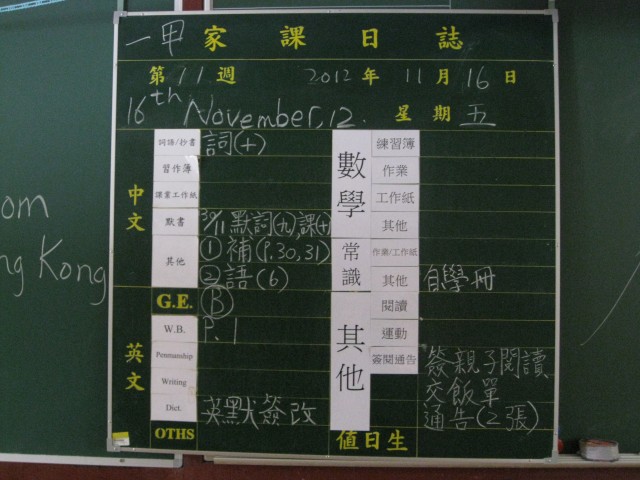 一甲 家課日誌
第11週 2012年11月16日
16th November, 12. 星期五
中文
詞語/抄書 詞(十)
習作簿
課業工作紙
默書 30/11 默詞(九)課(十)
其他 ①補(P.30,31)
②語(6)
G.E. Ⓑ
英文
W.B. P.1
Penmanship
Writing
Dict. 英默簽改
OTHS
數學
練習簿
作業
工作紙
其他
常識
作業/工作紙
其他 自學冊
其他
閱讀
運動
簽閱通告 簽親子閱讀
交飯單
通告(2張)
值日生
om
ng Kong